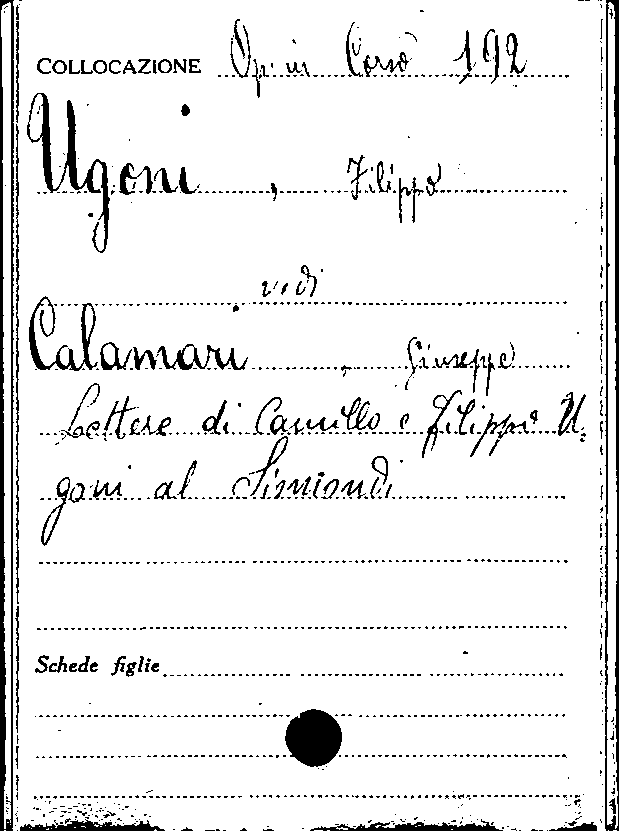 COLLOCAZIONE Op. in Corso 192
Ugoni, Filippo
vedi
Calamari, Giuseppe
Lettere di Camillo e Filippo U=
goni al Sismondi
Schede figlie